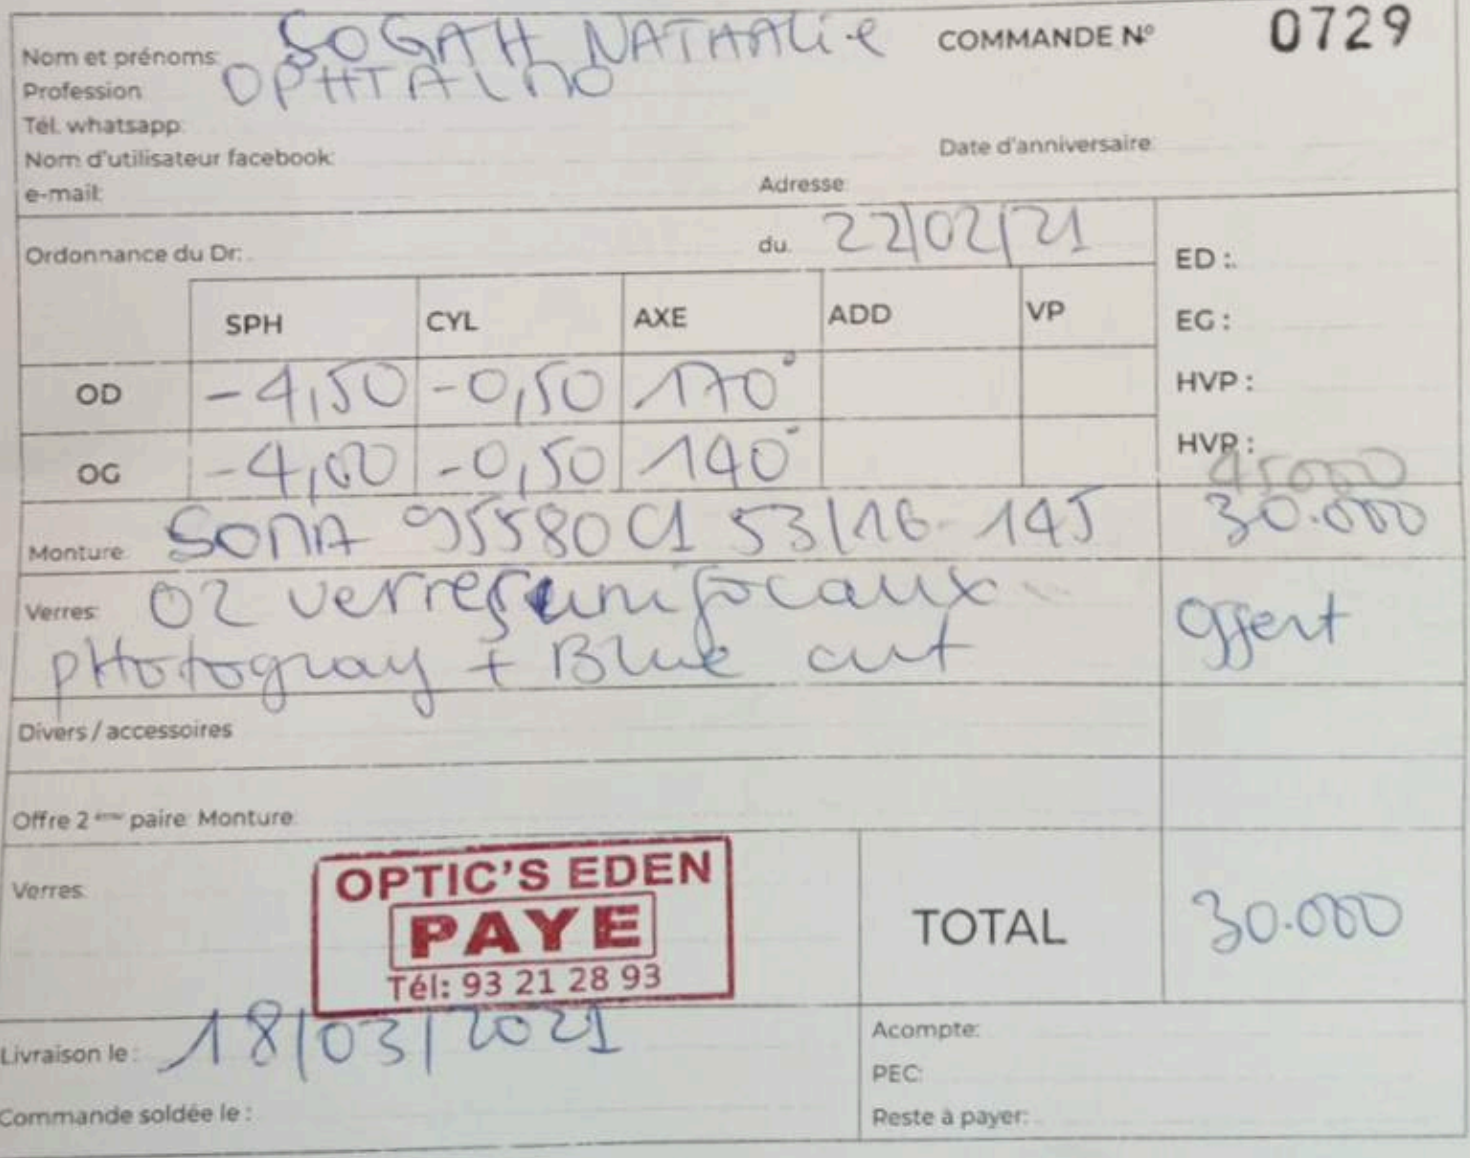 Nom et prénoms: SOGAH NATHALie
COMMANDE N° 0729
Profession OPHTALMO
Tél. whatsapp:
Nom d'utilisateur facebook:
Date d'anniversaire:
e-mail:
Adresse:
Ordonnance du Dr:
du. 22/02/21
ED :
SPH CYL AXE ADD VP
EG :
OD -4,50 -0,50 170°
HVP :
OG -4,00 -0,50 140°
HVP :
45000
Monture: SOMA 95580 C1 53/16-145 30.000
Verres: 02 verres unifocaux
pHotogray + Blue cut
offert
Divers / accessoires
Offre 2 ème paire: Monture:
Verres:
OPTIC'S EDEN
PAYE
Tél: 93 21 28 93
TOTAL 30.000
Livraison le : 18/03/2021
Acompte:
PEC:
Commande soldée le :
Reste à payer: